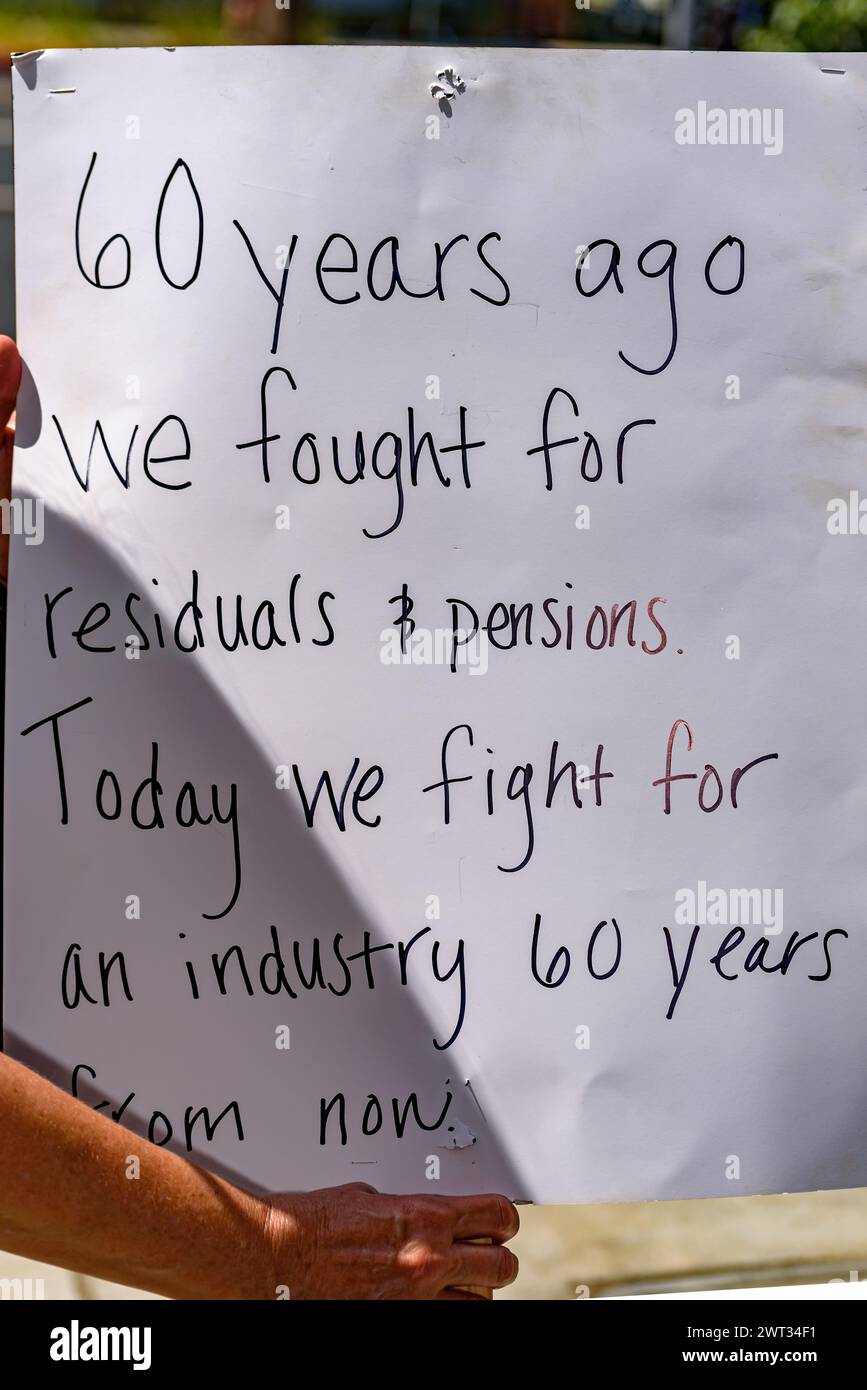 60 years ago
we fought for
residuals & pensions.
Today we fight for
an industry 60 years
from now.
alamy
Image ID: 2WT34F1
www.alamy.com